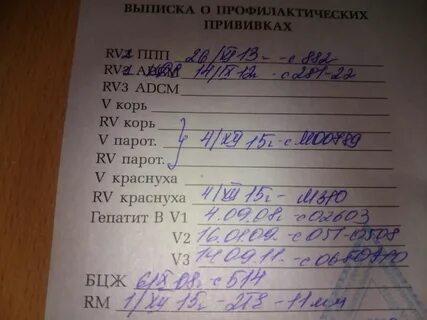 ВЫПИСКА О ПРОФИЛАКТИЧЕСКИХ
ПРИВИВКАХ
RV2 ППП 26/XI 13г. - с 882
14/IX 12г. с 281-22
RV3 ADCM
V корь
RV корь
V парот. 4/XII 15г - с М00789
RV парот.
V краснуха
RV краснуха 4/XII 15г - М310
Гепатит В V1 4.09.08г. с 02603
V2 16.0109. - с 051-0508
V3 14.09.11. - с
БЦЖ 6/IX 08г с 514
RM 1/XII 15г - 218 - 11мм